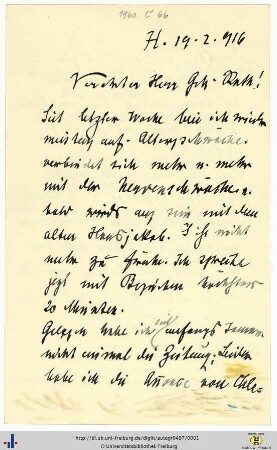 1960 C 66
H. 19.2.916
Verehrter Herr Geh. Rath!
Seit letzter Woche bin ich wieder
meistens auf. Altersschwäche
verbindet sich mehr u. mehr
mit der Nervenschwäche u.
bald wird's aus sein mit dem
alten Hansjakob. Ich
mehr zu Ich spreche
jetzt mit Besuchen höchstens
20 Minuten.
habe ich
nicht einmal die Zeitung. Leider
habe ich die von
http://dl.ub.uni-freiburg.de/diglit/autogr0497/0001
© Universitätsbibliothek Freiburg